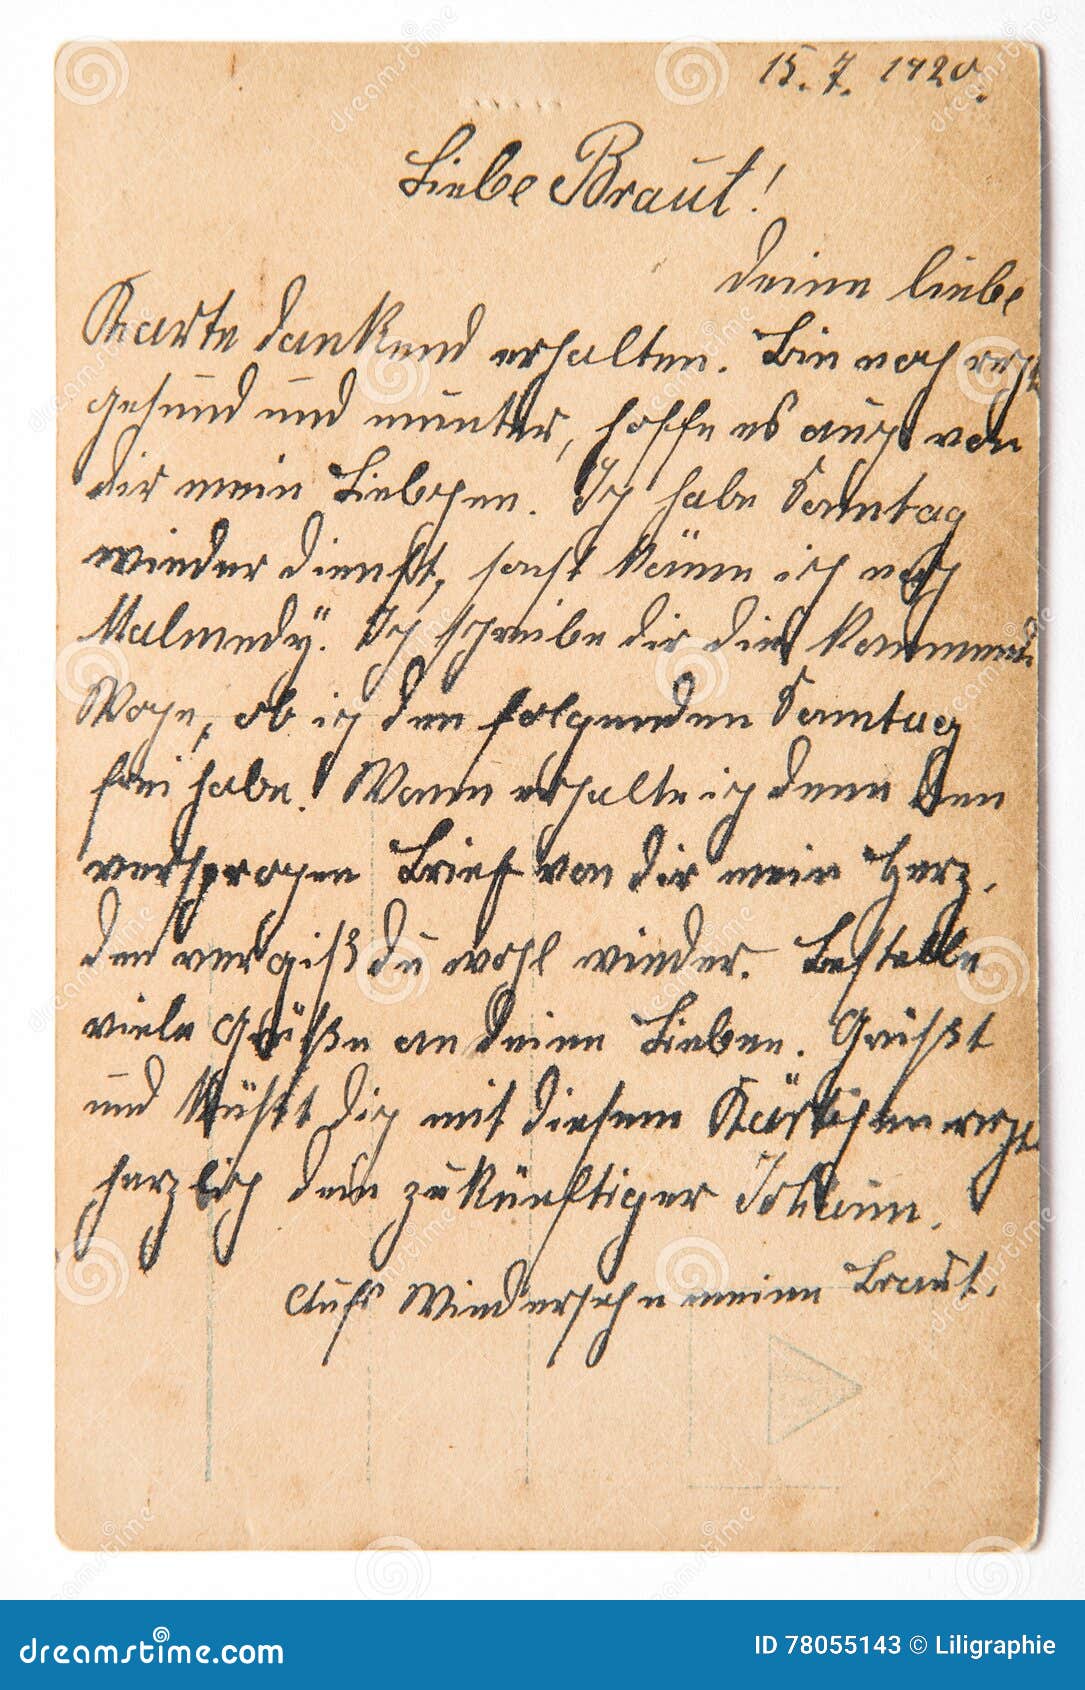 15. 7. 1920.
Liebe Braut!
Deine liebe
Karte dankend erhalten. Bin noch recht
gesund und munter, hoffe es auch von
dir mein Liebchen. Ich habe Sonntag
wieder Dienst, sonst käme ich nach
Malmedy. Ich schreibe dir die kommende
Woche, ob ich den folgenden Sonntag
frei habe. Wann erhalte ich denn den
versprochen Brief von dir mein Herz.
den vergißt du wohl wieder. Bestelle
viele Grüße an deine Lieben. Grüßt
und küßt dich mit diesem Kärtchen recht
herzlich dein zukünftiger
Aufs Wiedersehn meine Braut.
dreamstime
ID 78055143 © Liligraphie